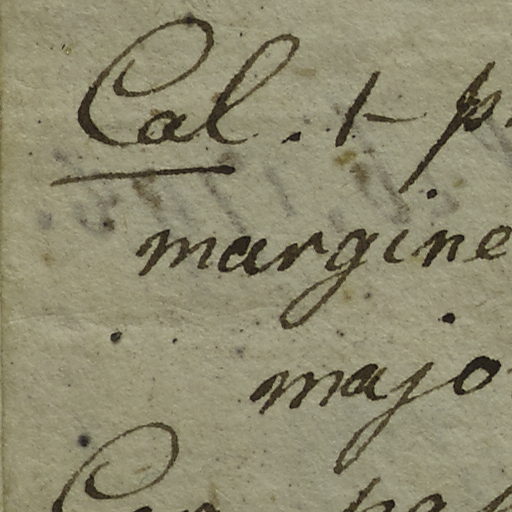 Cal. 1-p
margine
majo